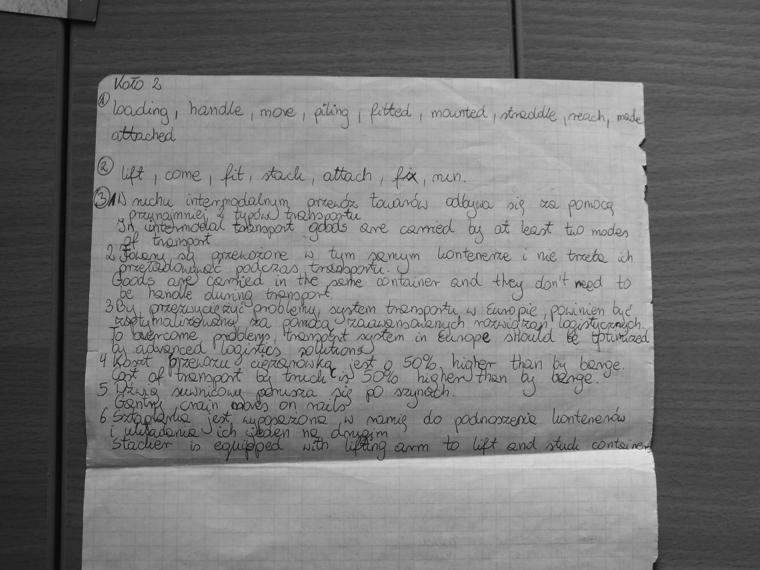 Koło 2
① loading, handle, move, piling, fitted, mounted, straddle, reach, made
attached
② lift, come, fit, stack, attach, fix, run.
③ 1 W ruchu intermodalnym przewóz towarów odbywa się za pomocą
przynajmniej 2 typów transportu
In intermodal transport goods are carried by at least two modes
of transport
2 Towary są przewożone w tym samym kontenerze i nie trzeba ich
przeładowywać podczas transportu.
Goods are carried in the same container and they don't need to
be handle during transport.
3 By przezwyciężyć problemy, system transportu w Europie, powinien być
zoptymalizowany za pomocą zaawansowanych rozwiązań logistycznych
To overcome problems, transport system in Europe should be optimized
by advanced logistics solutions
4 Koszt przewozu ciężarówką jest o 50% higher than by barge.
Cost of transport by truck is 50% higher than by barge.
5 Dźwig suwnicowy porusza się po szynach.
Gantry crain moves on rails
6 Sztaplarka jest wyposażona w ramię do podnoszenia kontenerów
i układania ich jeden na drugim
Stacker is equipped with lifting arm to lift and stack containers